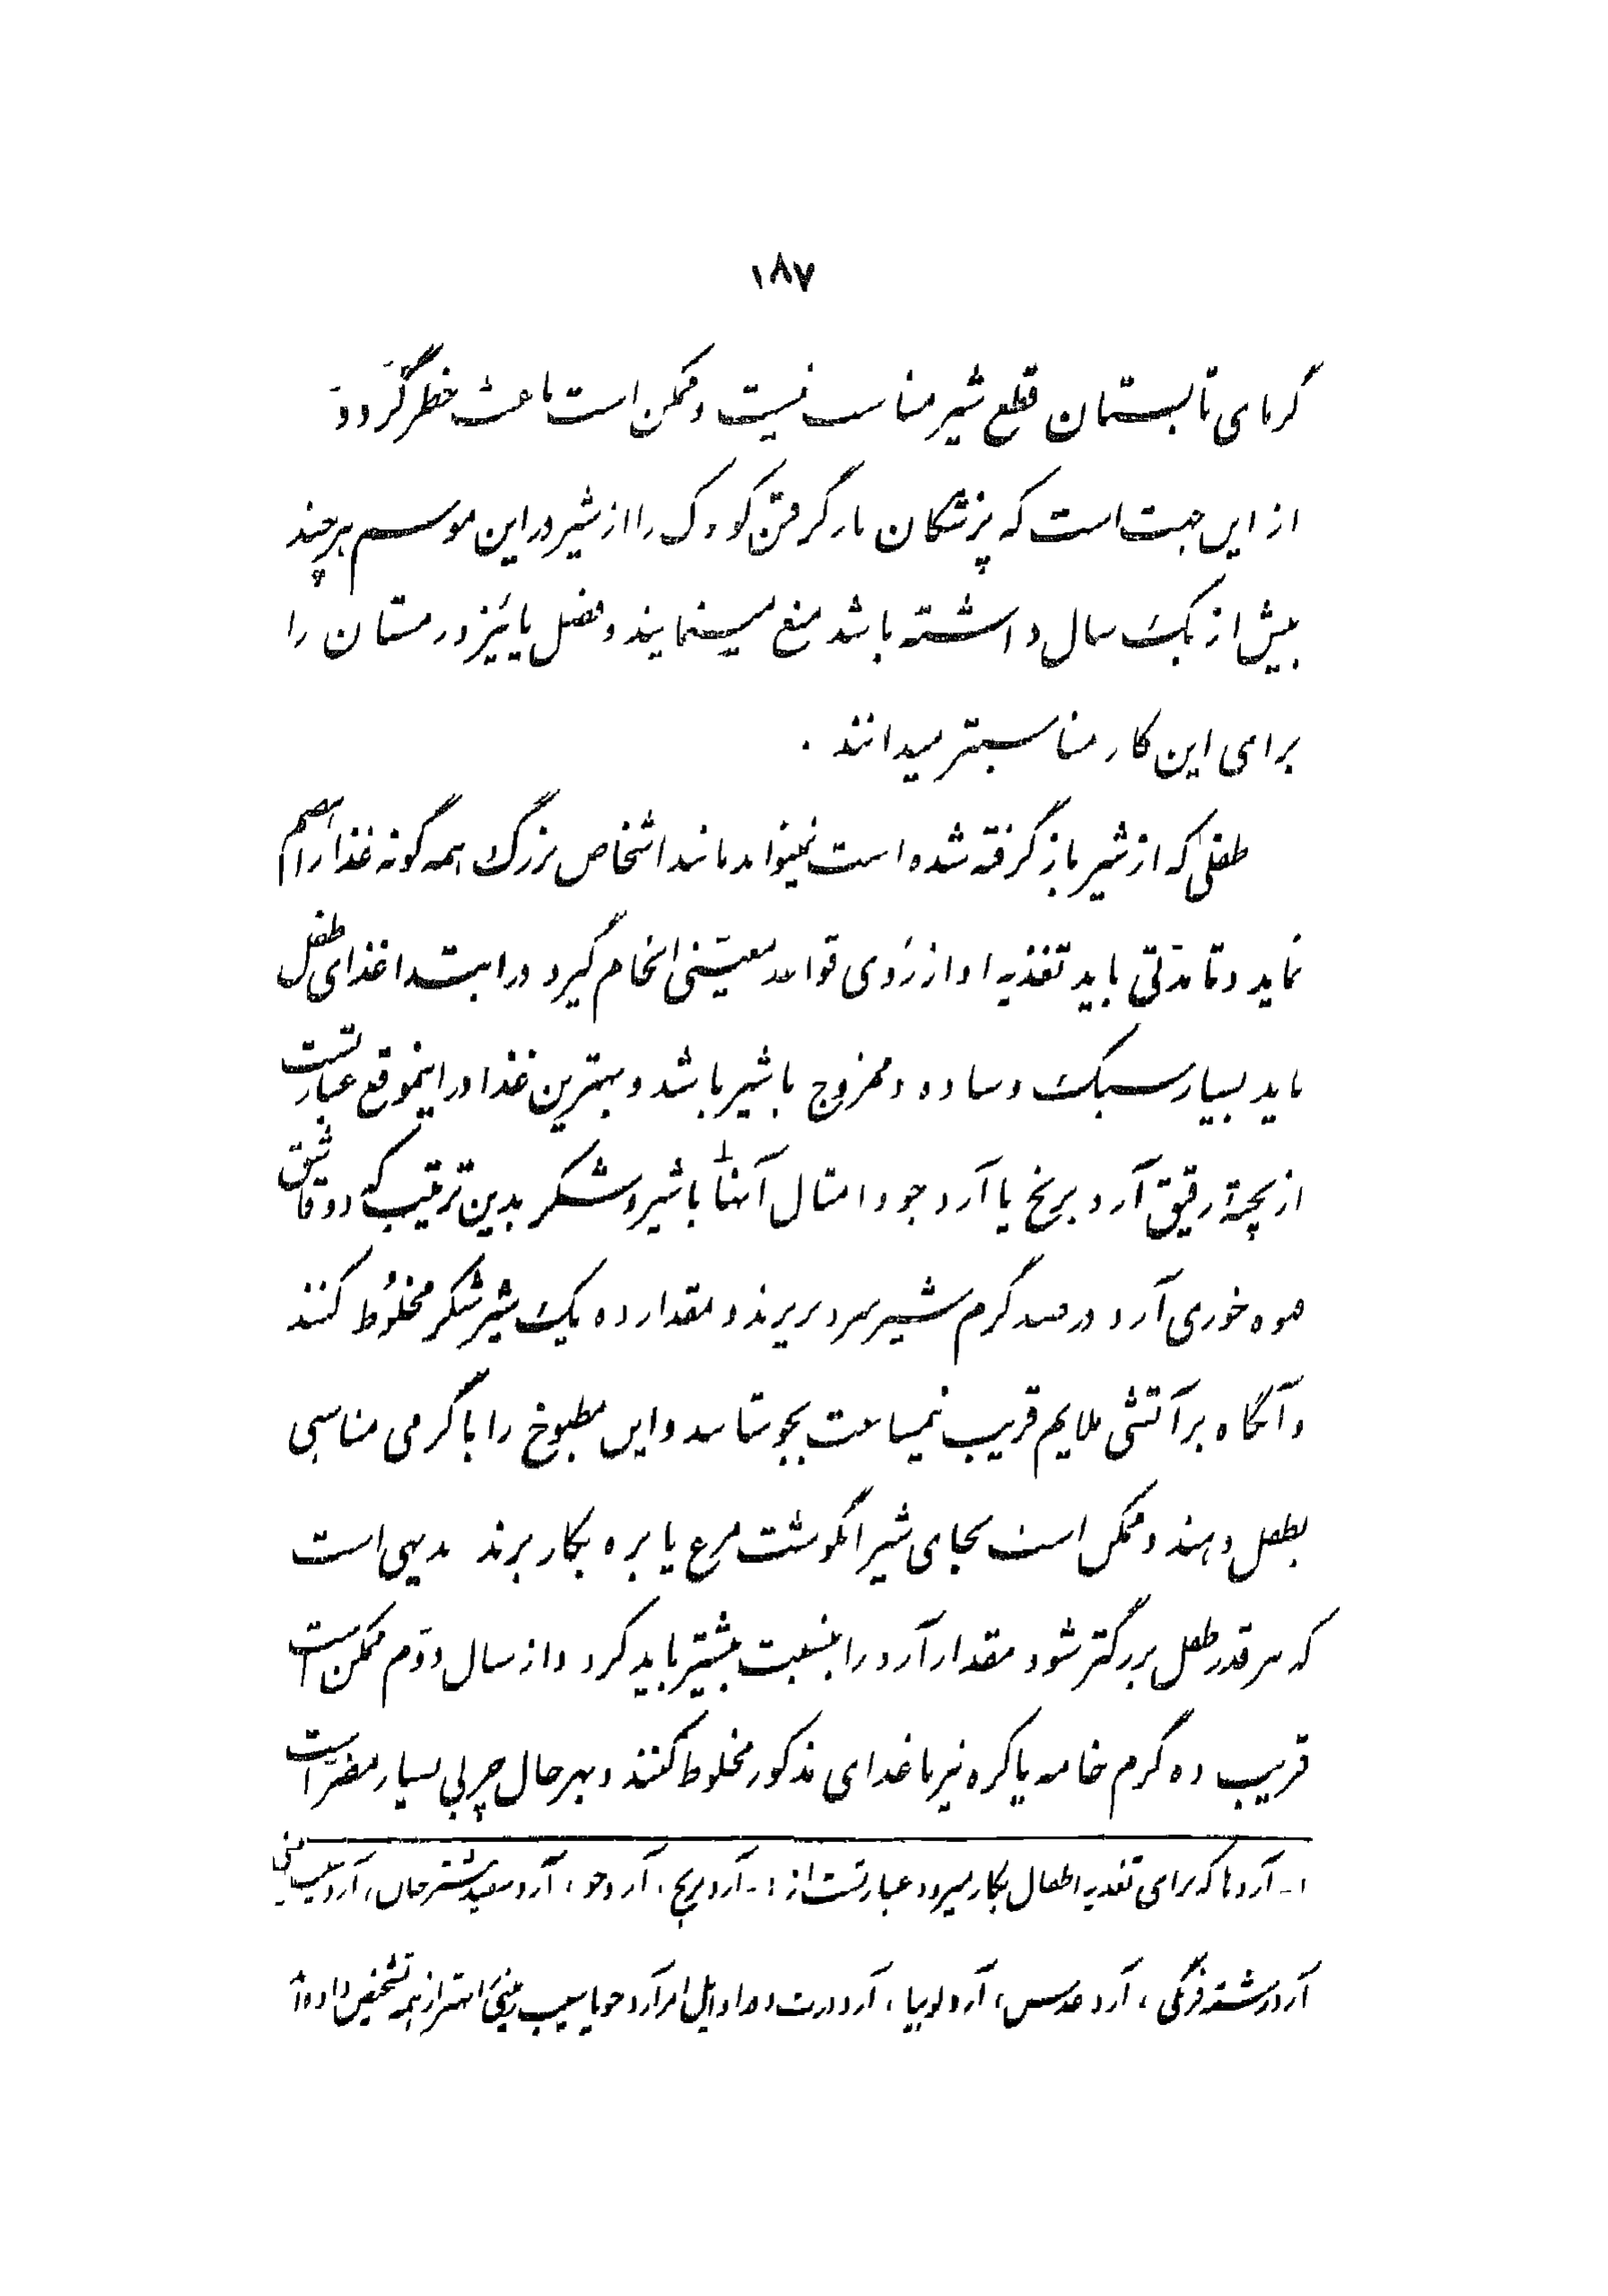 ۱۸۷
گرمای تابستان قطع شیر مناسب نیست و ممکن است باعث خطر گردد و
از این جهت است که پزشکان باز گرفتن کودک را از شیر در این موسم هر چند
بیش از یک سال داشته باشد منع مینمایند و فصل پائیز و زمستان را
برای این کار مناسبتر میدانند .
طفلی که از شیر باز گرفته شده است نمیتواند مانند اشخاص بزرگ همه گونه غذا را هضم
نماید و تا مدتی باید تغذیه او از روی قواعد معیّنی انجام گیرد در ابتدا غذای طفل
باید بسیار سبک و ساده و ممزوج با شیر باشد و بهترین غذا در اینموقع عبارتست
از پختهٔ رقیق آرد برنج یا آرد جو و امثال آنها ۱ با شیر و شکر بدین ترتیب که دو قاشق
قهوه خوری آرد در صد گرم شیر سرد بریزند و مقدار ده یک شیر شکر مخلوط کنند
و آنگاه بر آتشی ملایم قریب نیمساعت بجوشانند و این مطبوخ را با گرمی مناسبی
بطفل دهند و ممکن است بجای شیر آبگوشت مرغ یا بره بکار برند بدیهی است
که هر قدر طفل بزرگتر شود مقدار آرد را بنسبت بیشتر باید کرد و از سال دوّم ممکن است
قریب ده گرم خامه یا کره نیز با غذای مذکور مخلوط کنند و بهر حال چربی بسیار مضرّ است
۱ـ آردها که برای تغذیه اطفال بکار میرود عبارتست از : ـ آرد برنج ، آرد جو ، آرد سفید شترجان ، آرد سیب زمینی
آرد رشته فرنگی ، آرد عدس ، آرد لوبیا ، آرد ذرت و در اوایل امر آرد جو یا سیب زمینی بهتر از همه تشخیص داده